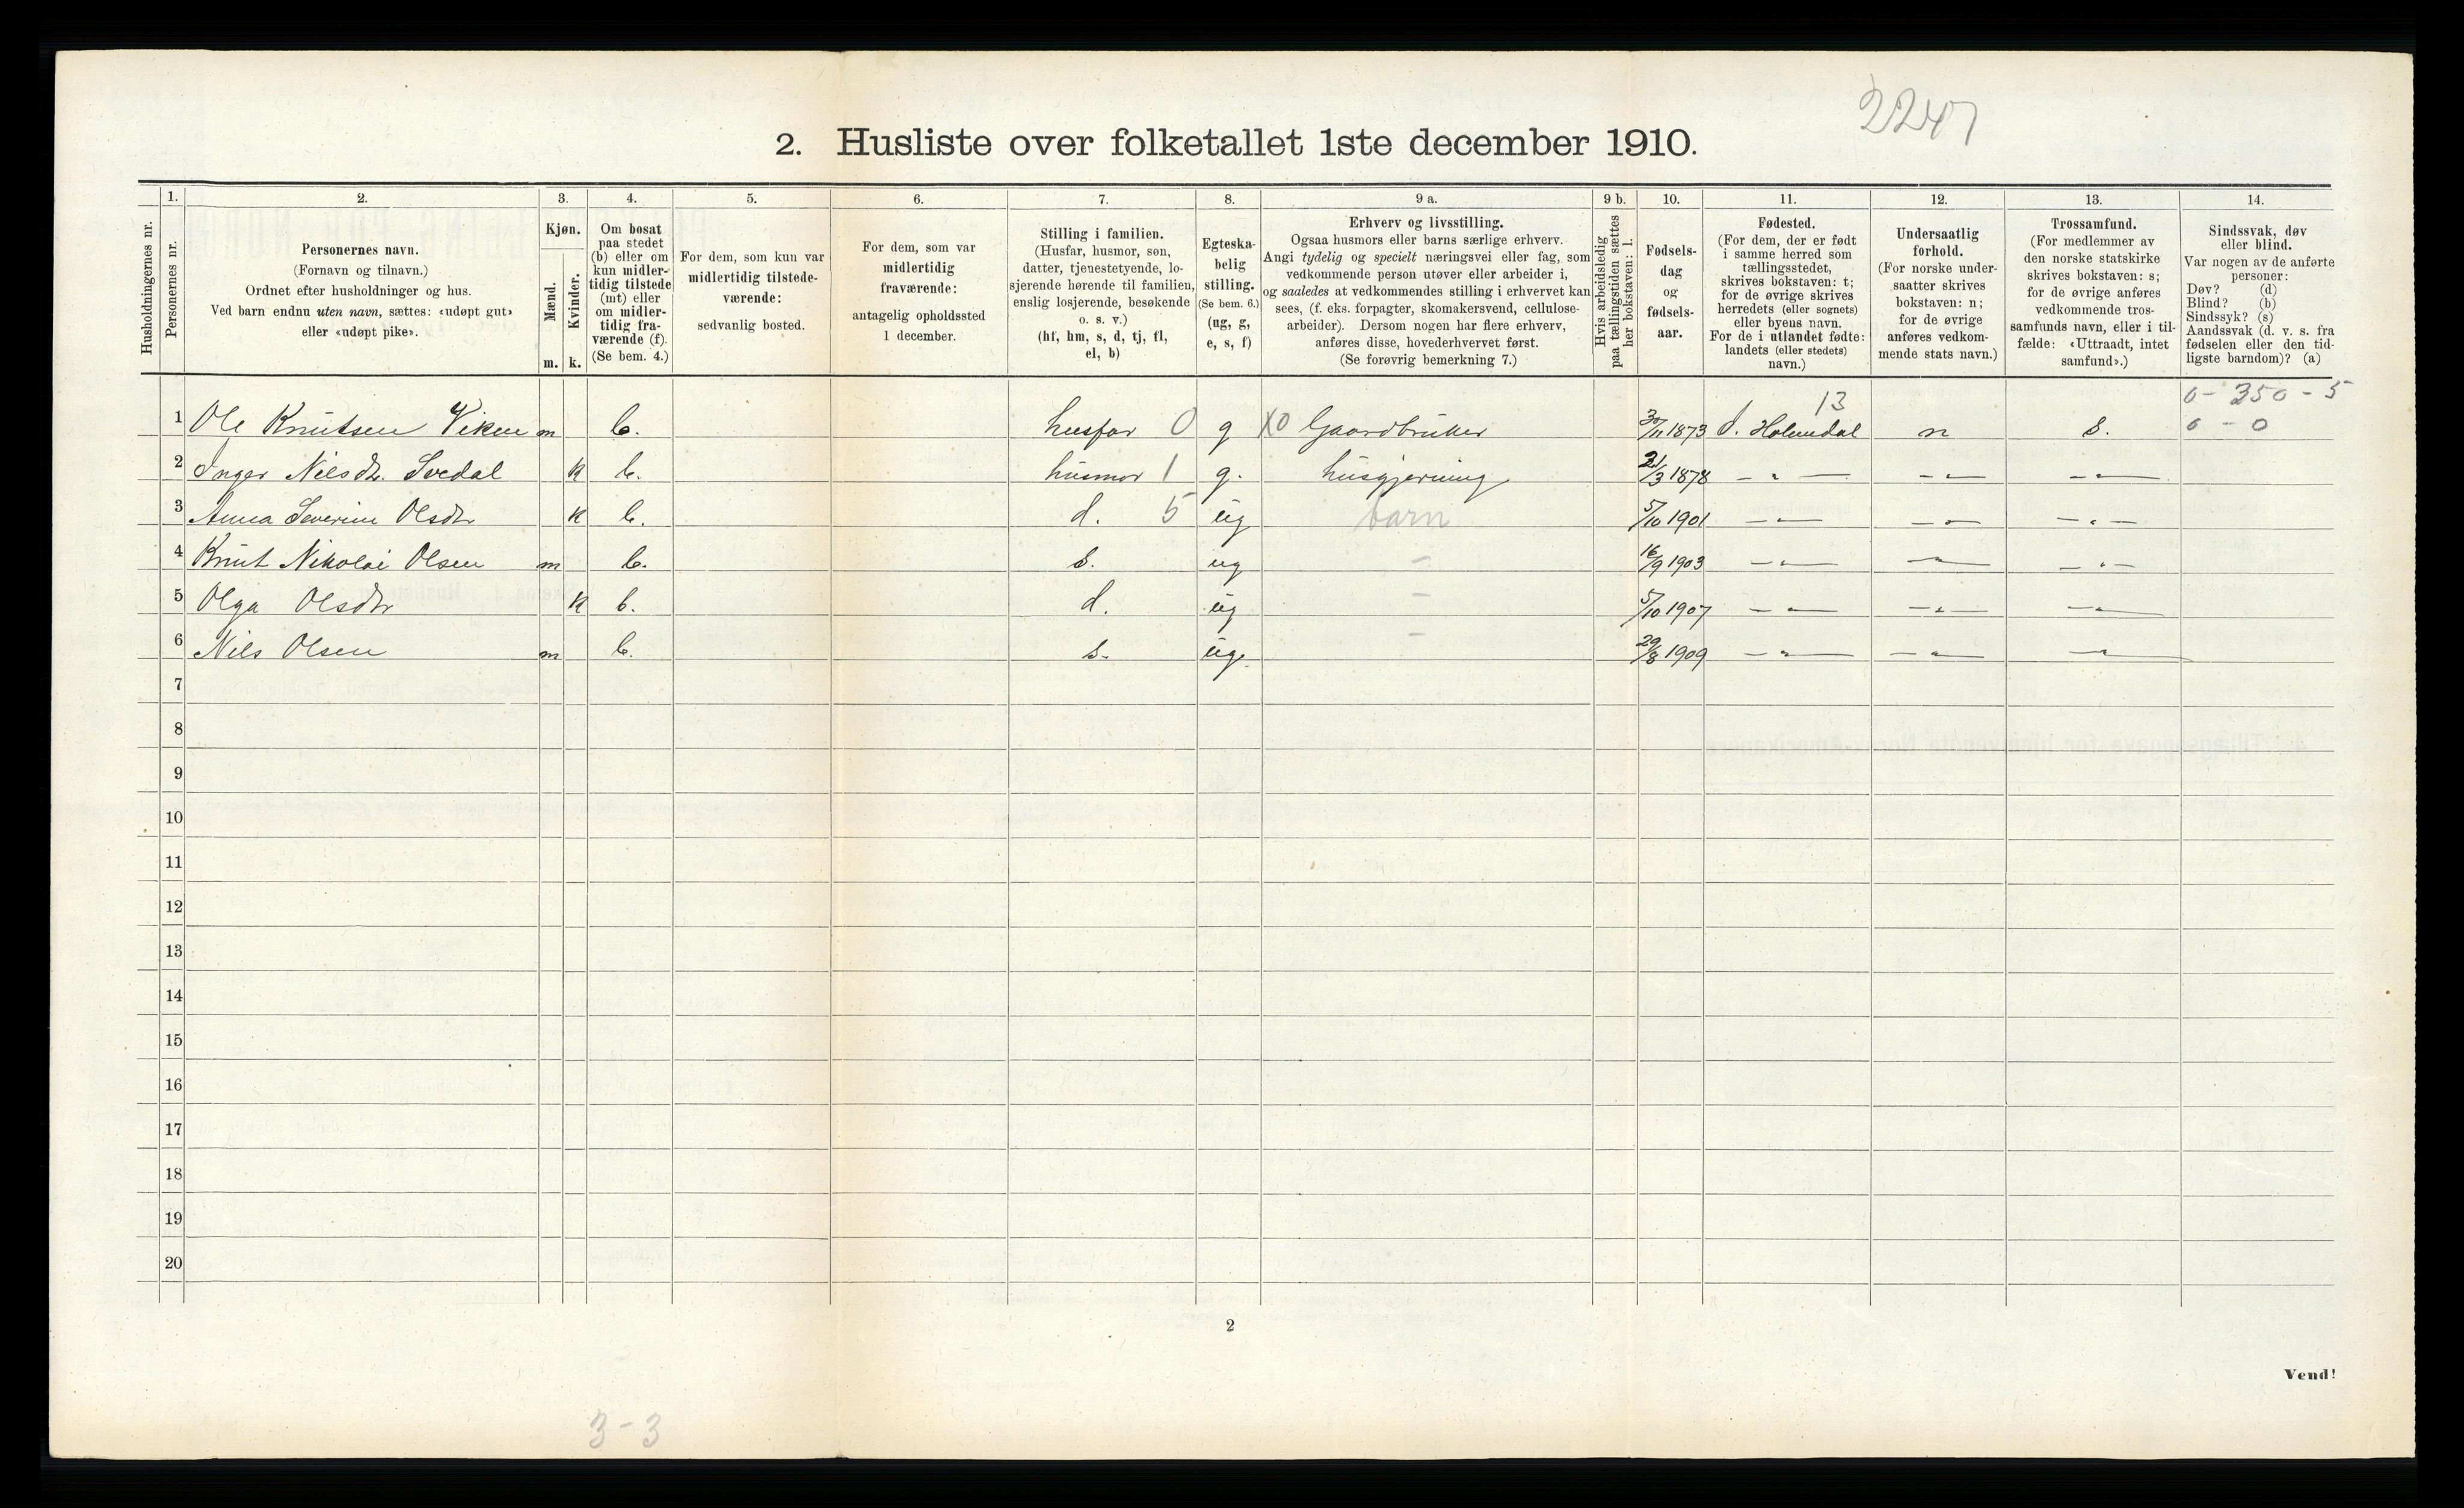 2247
2. Husliste over folketallet 1ste december 1910.
Husholdningernes nr.
1.
Personernes nr.
2.
Personernes navn.
(Fornavn og tilnavn.)
Ordnet efter husholdninger og hus.
Ved barn endnu uten navn, sættes: «udøpt gut»
eller «udøpt pike».
3.
Kjøn.
Mænd.
m.
Kvinder.
k.
4.
Om bosat
paa stedet
(b) eller om
kun midler-
tidig tilstede
(mt) eller
om midler-
tidig fra-
værende (f).
(Se bem. 4.)
5.
For dem, som kun var
midlertidig tilstede-
værende:
sedvanlig bosted.
6.
For dem, som var
midlertidig
fraværende:
antagelig opholdssted
1 december.
7.
Stilling i familien.
(Husfar, husmor, søn,
datter, tjenestetyende, lo-
sjerende hørende til familien,
enslig losjerende, besøkende
o. s. v.)
(hf, hm, s, d, tj, fl,
el, b)
8.
Egteska-
belig
stilling.
(Se bem. 6.)
(ug, g,
e, s, f)
9 a.
Erhverv og livsstilling.
Ogsaa husmors eller barns særlige erhverv.
Angi tydelig og specielt næringsvei eller fag, som
vedkommende person utøver eller arbeider i,
og saaledes at vedkommendes stilling i erhvervet kan
sees, (f. eks. forpagter, skomakersvend, cellulose-
arbeider). Dersom nogen har flere erhverv,
anføres disse, hovederhvervet først.
(Se forøvrig bemerkning 7.)
9 b.
Hvis arbeidsledig
paa tællingstiden sættes
her bokstaven: l.
10.
Fødsels-
dag
og
fødsels-
aar.
11.
Fødested.
(For dem, der er født
i samme herred som
tællingsstedet,
skrives bokstaven: t;
for de øvrige skrives
herredets (eller sognets)
eller byens navn.
For de i utlandet fødte:
landets (eller stedets)
navn.)
12.
Undersaatlig
forhold.
(For norske under-
saatter skrives
bokstaven: n;
for de øvrige
anføres vedkom-
mende stats navn.)
13.
Trossamfund.
(For medlemmer av
den norske statskirke
skrives bokstaven: s;
for de øvrige anføres
vedkommende tros-
samfunds navn, eller i til-
fælde: «Uttraadt, intet
samfund».)
14.
Sindssvak, døv
eller blind.
Var nogen av de anførte
personer:
Døv? (d)
Blind? (b)
Sindssyk? (s)
Aandssvak (d. v. s. fra
fødselen eller den tid-
ligste barndom)? (a)
13 0 - 350 - 5
1 Ole Knutsen Viken m b. husfar 0 g X0 Gaardbruker 30/11 1873 I. Holmedal n s. 0 - 0
2 Inger Nilsdtr. Svedal k b. husmor 1 g. husgjerning 21/3 1878 - " - - " - - " -
3 Anna Severine Olsdtr k b. d. 5 ug barn 5/10 1901 - " - - " - - " -
4 Knut Nikolai Olsen m b. s. ug - 16/9 1903 - " - - " - - " -
5 Olga Olsdtr k b. d. ug - 5/10 1907 - " - - " - - " -
6 Nils Olsen m b. s. ug. - 29/8 1909 - " - - " - - " -
7
8
9
10
11
12
13
14
15
16
17
18
19
20
2
Vend!
3 - 3